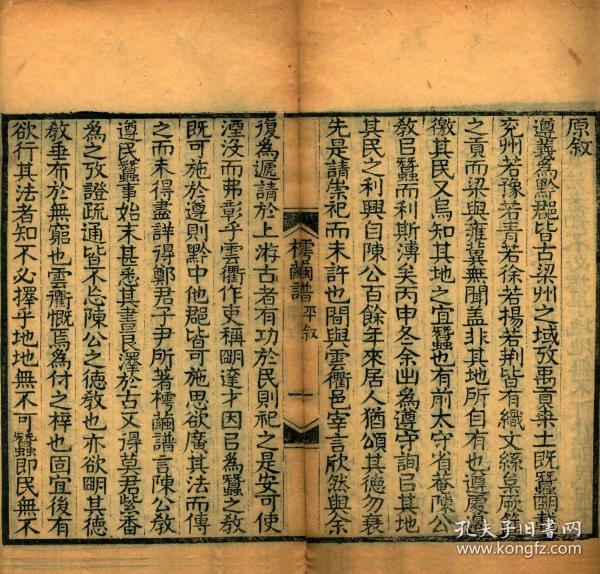 原叙
遵義為黔郡皆古梁州之域攷禹貢桑土既蠶
兗州若豫若青若徐若揚若荆皆有織文絲枲厥篚
之貢而梁與雍冀無聞盖非其地所自有也遵處
徼其民又烏知其地之宜蠶也有前太守省菴陳公
教㠯蠶而利斯溥矣丙申冬余出為遵守詢㠯其地
其民之利興自陳公百餘年來居人猶頌其德勿衰
先是請崇祀而未許也間與雲衢邑宰言欣然與余
復為遞請於上游古者有功於民則祀之是安可使
湮没而弗彰乎雲衢作吏稱朙達才因㠯為蠶之教
既可施於遵則黔中他郡皆可施思欲廣其法而傳
之而未得盡詳得鄭君子尹所著樗繭譜言陳公教
遵民蠶事始末甚悉其書㠯澤於古又得莫君㠱香
為之攷證疏通皆不忘陳公之德教也亦欲朙其德
教垂布於無窮也雲衢慨焉為付之梓也固宜後有
欲行其法者知不必擇乎地地無不可蠶即民無不
樗繭譜 平叙
一
孔夫子旧書网
www.kongfz.com